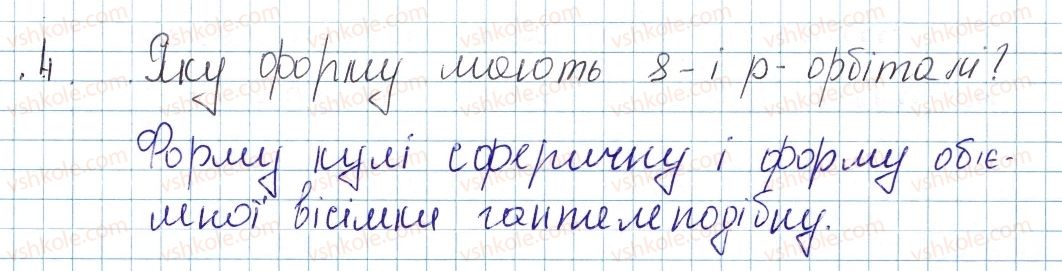 .4. Яку форму мають s-і p-орбіталі?
Форму кулі сферичну і форму обіє-
мної вісімки гантелеподібну.